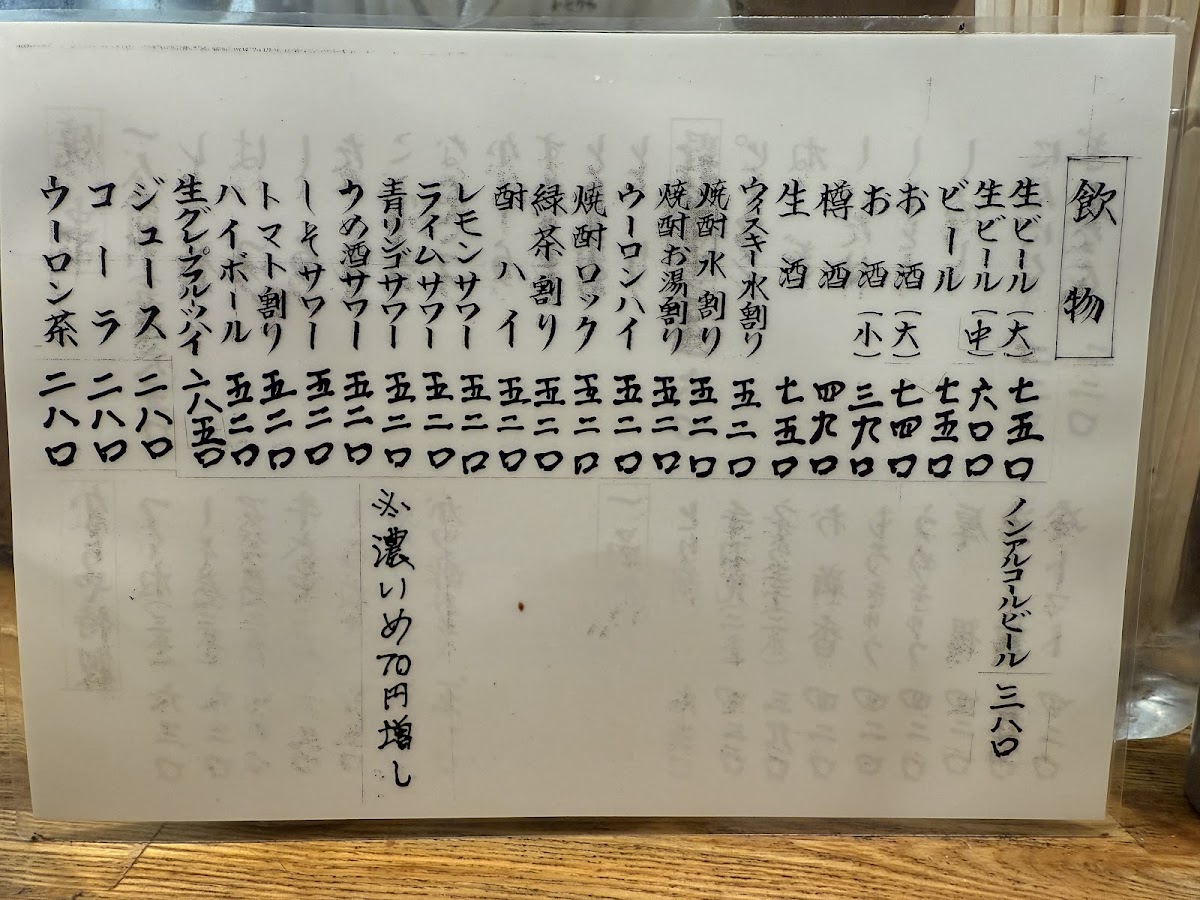 飲物
生ビール(大) 七五〇
生ビール(中) 六〇〇
ビール 七五〇
お酒(大) 七四〇
お酒(小) 三九〇
樽酒 四九〇
生酒 七五〇
ウィスキー水割り 五二〇
焼酎水割り 五二〇
焼酎お湯割り 五二〇
ウーロンハイ 五二〇
焼酎ロック 五二〇
緑茶割り 五二〇
酎ハイ 五二〇
レモンサワー 五二〇
ライムサワー 五二〇
青リンゴサワー 五二〇
うめ酒サワー 五二〇
しそサワー 五二〇
トマト割り 五二〇
ハイボール 五二〇
生グレープフルーツハイ 六八五〇
ジュース 二八〇
コーラ 二八〇
ウーロン茶 二八〇
ノンアルコールビール 三八〇
※濃いめ70円増し